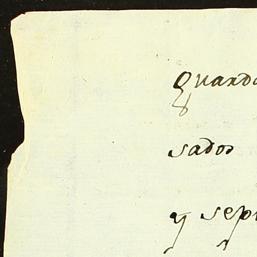 guarda
sados
y sep